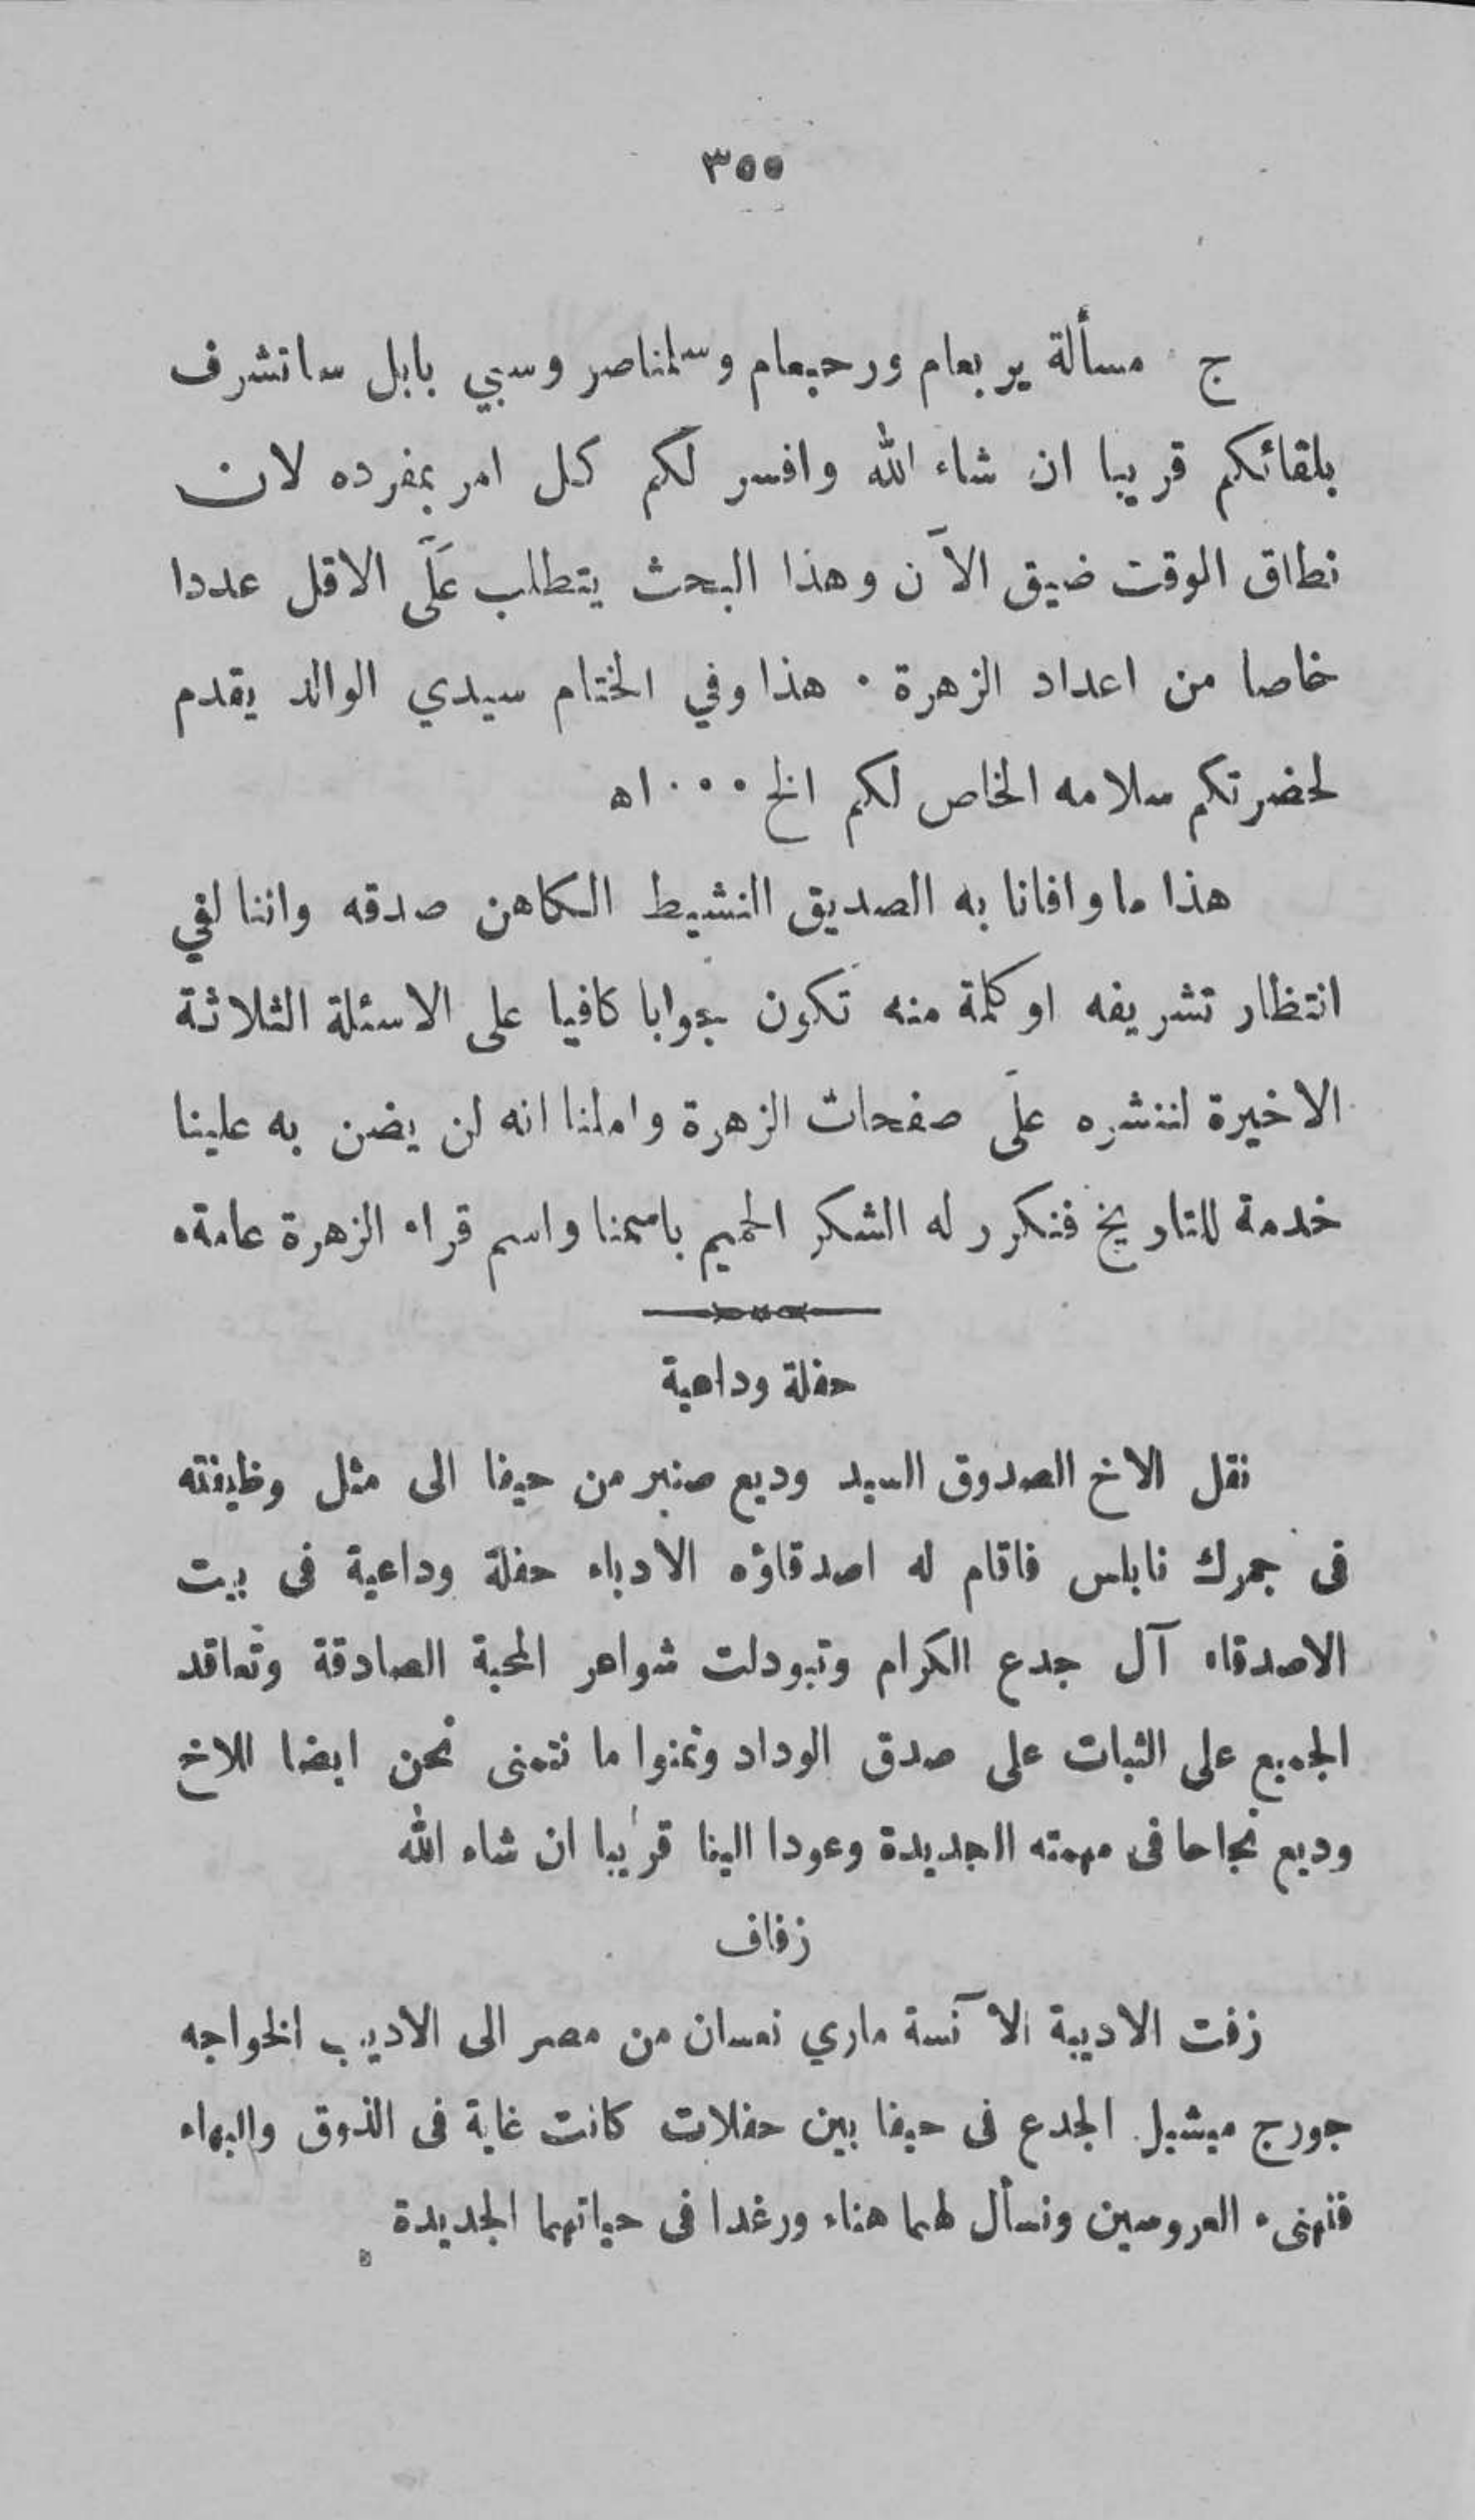 ٣٥٥
ج مسألة يربعام ورحبعام وسلمناصر وسبي بابل ساتشرف
بلقائكم قريبا ان شاء الله وافسر لكم كل امر بمفرده لان
نطاق الوقت ضيق الآن وهذا البحث يتطلب عَلَى الاقل عددا
خاصا من اعداد الزهرة ٠ هذا وفي الختام سيدي الوالد يقدم
لحضرتكم سلامه الخاص لكم الخ ٠٠٠ اه
هذا ما وافانا به الصديق النشيط الكاهن صدقه واننا لفي
انتظار تشريفه او كلمة منه تكون جوابا كافيا على الاسئلة الثلاثة
الاخيرة لننشره علَى صفحات الزهرة واملنا انه لن يضن به علينا
خدمة للتاريخ فنكرر له الشكر الحميم باسمنا واسم قراء الزهرة عامة ٠
حفلة وداعية
نقل الاخ الصدوق السيد وديع صنبر من حيفا الى مثل وظيفته
فى جمرك نابلس فاقام له اصدقاؤه الادباء حفلة وداعية فى بيت
الاصدقاء آل جدع الكرام وتبودلت شواعر المحبة الصادقة وتعاقد
الجميع على الثبات على صدق الوداد وتمنوا ما نتمنى نحن ايضا للاخ
وديع نجاحا فى مهمته الجديدة وعودا الينا قريبا ان شاء الله
زفاف
زفت الاديبة الآنسة ماري نعسان من مصر الى الاديب الخواجه
جورج ميشيل الجدع فى حيفا بين حفلات كانت غاية فى الذوق والبهاء
فنهنىء العروسين ونسأل لهما هناء ورغدا فى حياتهما الجديدة